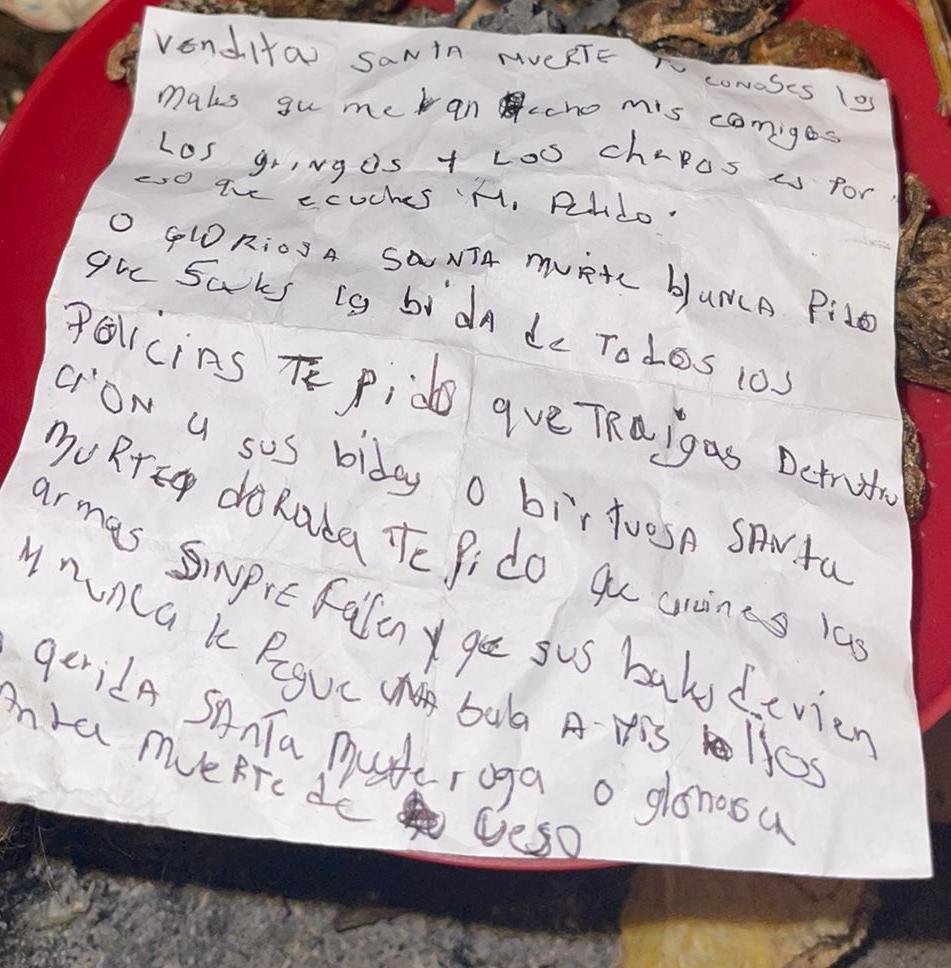 Vendita SANTA MUERTE tu conoses los
males qu me han echo mis comigos
Los gringos y Los chapas es Por
eso que ecuches Mi Pedido.
O GLORiOSA SANTA muirte blANCA Pido
que Sakes la bidA de ToDos lOS
POliCiAS TE pido que TRAigas Detrutru
CiON a sus biday O birtuosA SANta
MURTE dORada TE Pido que aruines las
armas SiNPrE fallen Y qe sus balas devien
y nunca le Pegue UNA bala A mis Hijos
qeridA SANTa Muerte roga o gloriosa
Anta MUERTE de UESO